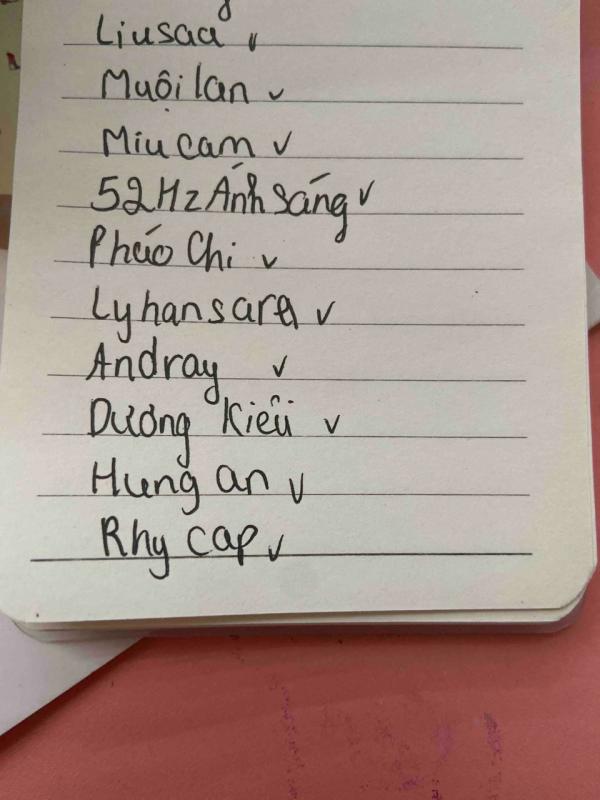 Liusaa ✓
Muội lan ✓
Miu cam ✓
52Hz Ánh sáng ✓
Pháo Chi ✓
Lyhansara ✓
Andray ✓
Dương Kiều ✓
Hung an ✓
Rhy cap ✓